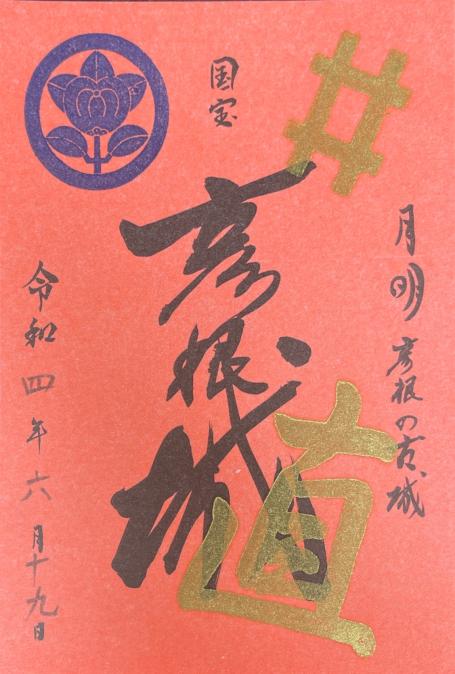 井
直
月明彦根の古城
国宝
彦根城
令和四年六月十九日